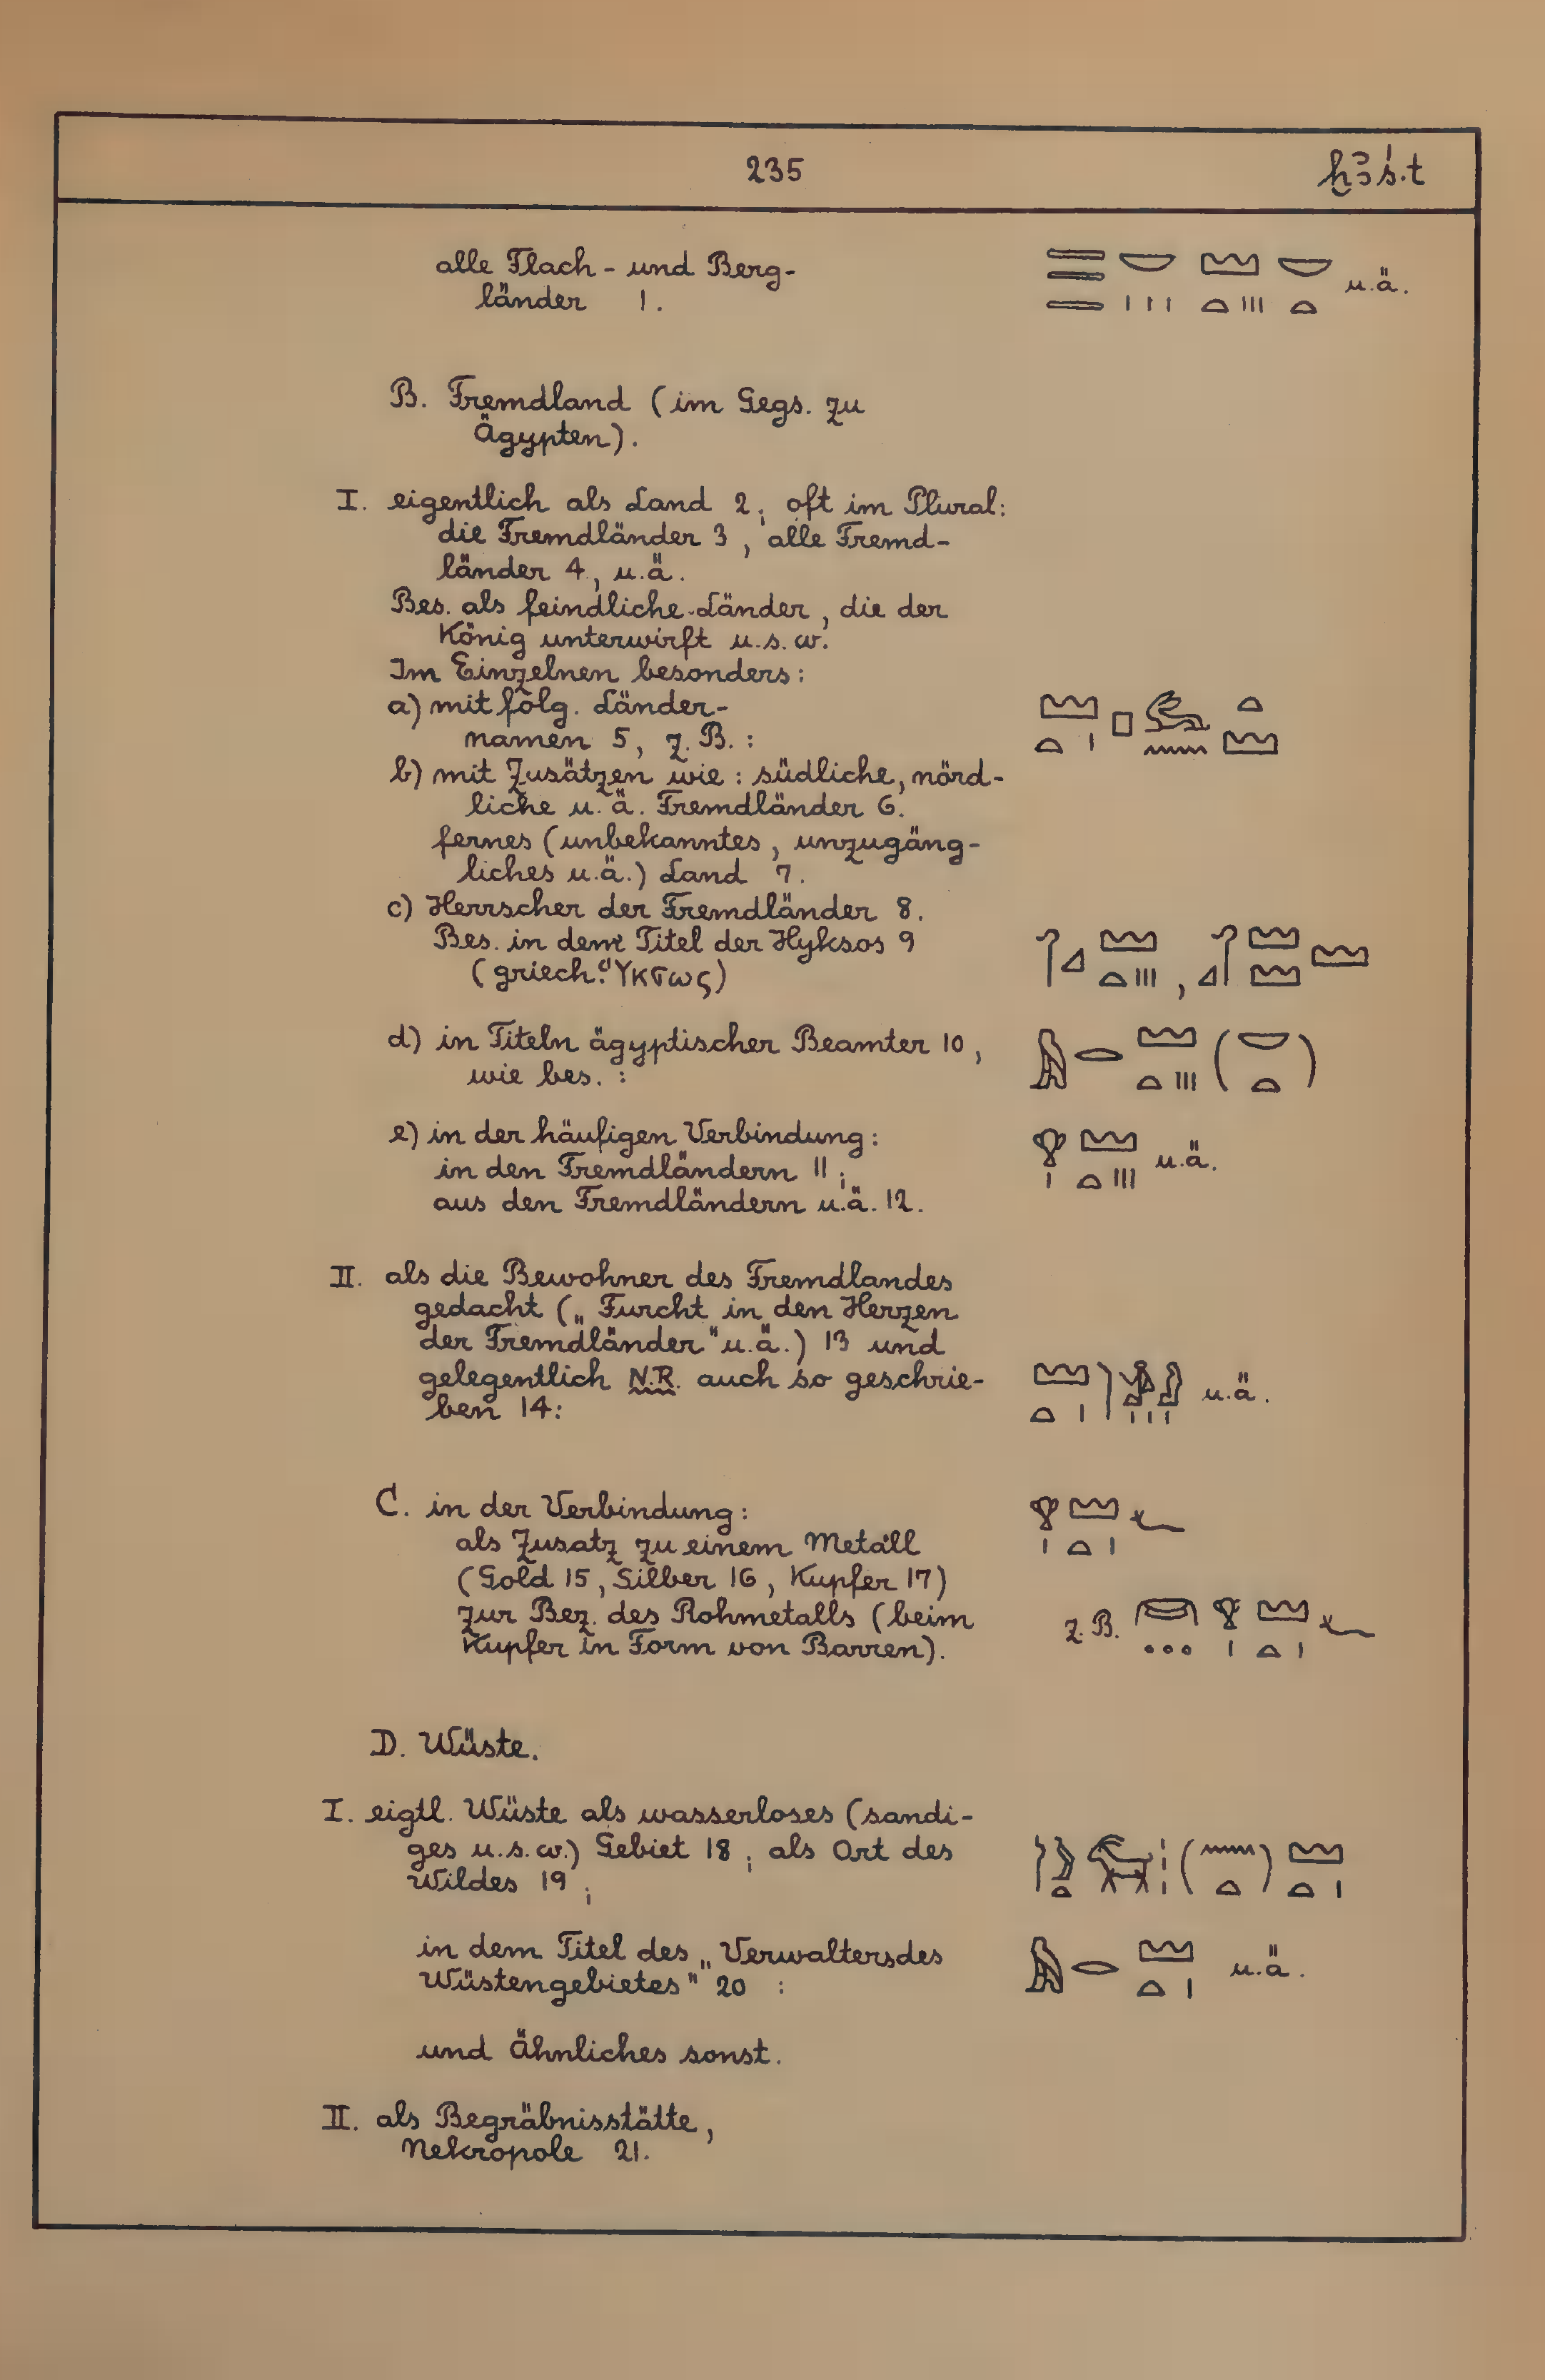 235 ḫꜣś.t
alle Flach- und Berg-
länder 1. u.ä.
B. Fremdland (im Gegs. zu
Ägypten).
I. eigentlich als Land 2; oft im Plural:
die Fremdländer 3, alle Fremd-
länder 4, u.ä.
Bes. als feindliche Länder, die der
König unterwirft u.s.w.
Im Einzelnen besonders:
a) mit folg. Länder-
namen 5, z.B.:
b) mit Zusätzen wie: südliche, nörd-
liche u.ä. Fremdländer 6.
fernes (unbekanntes, unzugäng-
liches u.ä.) Land 7.
c) Herrscher der Fremdländer 8.
Bes. in dem Titel der Hyksos 9
(griech. Ὑκσως)
d) in Titeln ägyptischer Beamter 10,
wie bes.:
e) in der häufigen Verbindung:
in den Fremdländern 11; u.ä.
aus den Fremdländern u.ä. 12.
II. als die Bewohner des Fremdlandes
gedacht („Furcht in den Herzen
der Fremdländer" u.ä.) 13 und
gelegentlich N.R. auch so geschrie- u.ä.
ben 14:
C. in der Verbindung:
als Zusatz zu einem Metall
(Gold 15, Silber 16, Kupfer 17)
zur Bez. des Rohmetalls (beim z.B.
Kupfer in Form von Barren).
D. Wüste.
I. eigtl. Wüste als wasserloses (sandi-
ges u.s.w.) Gebiet 18; als Ort des
Wildes 19;
in dem Titel des „Verwalters des
Wüstengebietes" 20 : u.ä.
und Ähnliches sonst.
II. als Begräbnisstätte,
Nekropole 21.